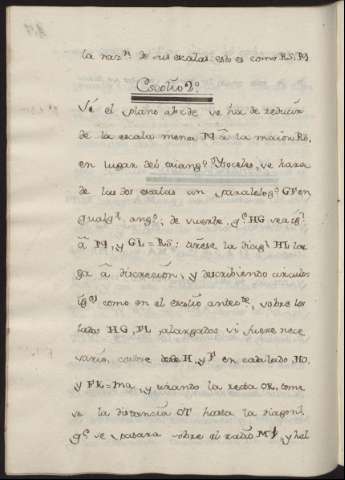 la raz.ⁿ de sus escalas esto es como RS: M
Escolio 2º
Si el plano abcde se ha de reducir
de la escala menor M â la maior RS,
en lugar del triang.º Ysoceles, se hara
de las dos escalas un paralelog.º GF en
qualq.ʳ ang.º, de suerte, q.ᵉ HG sea ig.ˡ
â M, y GL = RS; tirese la diag.ˡ HL lar
ga â discrecion, y describiendo circulos
ig.ˢ como en el escolio antec.ᵗᵉ, sobre los
lados HG, FL, alargados si fuere nece
sario, cortese desde H, y F en cada lado HO,
y FK = ma, y tirando la recta OK, tome
se la distancia OT hasta la diagon.ˡ
q.ᵉ se pasara sobre el radio M, y hal